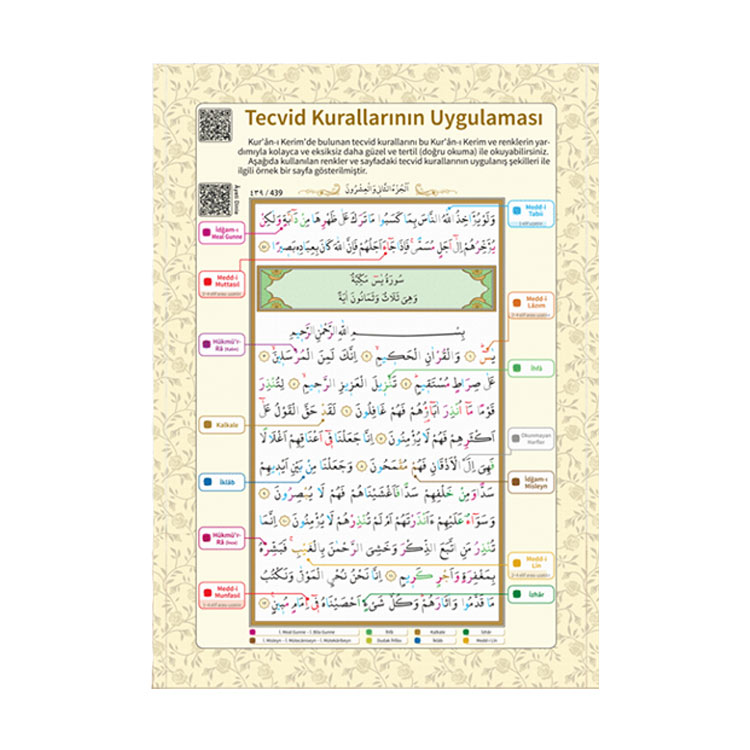 Tecvid Kurallarının Uygulaması
Kur'ân-ı Kerim'de bulunan tecvid kurallarını bu Kur'ân-ı Kerim ve renklerin yar-
dımıyla kolayca ve eksiksiz daha güzel ve tertil (doğru okuma) ile okuyabilirsiniz.
Aşağıda kullanılan renkler ve sayfadaki tecvid kurallarının uygulanış şekilleri ile
ilgili örnek bir sayfa gösterilmiştir.
٤٣٩ / 439
اَلْجُزْءُ الثَّانِي وَالْعِشْرُونَ
Ayet Dinle
وَلَوْ يُؤَاخِذُ اللّٰهُ النَّاسَ بِمَا كَسَبُوا مَا تَرَكَ عَلٰى ظَهْرِهَا مِنْ دَٓابَّةٍ وَلٰكِنْ
يُؤَخِّرُهُمْ اِلٰٓى اَجَلٍ مُسَمًّىۚ فَاِذَا جَٓاءَ اَجَلُهُمْ فَاِنَّ اللّٰهَ كَانَ بِعِبَادِه۪ بَص۪يرًا
سُورَةُ يٰسٓ مَكِّيَّةٌ
وَهِيَ ثَلَاثٌ وَثَمَانُونَ اٰيَةً
بِسْمِ اللّٰهِ الرَّحْمٰنِ الرَّحِيمِ
يٰسٓ ۞ وَالْقُرْاٰنِ الْحَك۪يمِ ۞ اِنَّكَ لَمِنَ الْمُرْسَل۪ينَ
عَلٰى صِرَاطٍ مُسْتَق۪يمٍ ۞ تَنْز۪يلَ الْعَز۪يزِ الرَّح۪يمِ ۞ لِتُنْذِرَ
قَوْمًا مَٓا اُنْذِرَ اٰبَٓاؤُ۬هُمْ فَهُمْ غَافِلُونَ ۞ لَقَدْ حَقَّ الْقَوْلُ عَلٰٓى
اَكْثَرِهِمْ فَهُمْ لَا يُؤْمِنُونَ ۞ اِنَّا جَعَلْنَا ف۪ٓي اَعْنَاقِهِمْ اَغْلَالًا
فَهِيَ اِلَى الْاَذْقَانِ فَهُمْ مُقْمَحُونَ ۞ وَجَعَلْنَا مِنْ بَيْنِ اَيْد۪يهِمْ
سَدًّا وَمِنْ خَلْفِهِمْ سَدًّا فَاَغْشَيْنَاهُمْ فَهُمْ لَا يُبْصِرُونَ
وَسَوَٓاءٌ عَلَيْهِمْ ءَاَنْذَرْتَهُمْ اَمْ لَمْ تُنْذِرْهُمْ لَا يُؤْمِنُونَ ۞ اِنَّمَا
تُنْذِرُ مَنِ اتَّبَعَ الذِّكْرَ وَخَشِيَ الرَّحْمٰنَ بِالْغَيْبِۚ فَبَشِّرْهُ
بِمَغْفِرَةٍ وَاَجْرٍ كَر۪يمٍ ۞ اِنَّا نَحْنُ نُحْيِ الْمَوْتٰى وَنَكْتُبُ
مَا قَدَّمُوا وَاٰثَارَهُمْۜ وَكُلَّ شَيْءٍ اَحْصَيْنَاهُ ف۪ٓي اِمَامٍ مُب۪ينٍ
İdğam-ı
Meal Gunne
Medd-i
Muttasıl
Hükmü'r-
Râ (Kalın)
Kalkale
İklâb
Hükmü'r-
Râ (İnce)
Medd-i
Munfasıl
Medd-i
Tabii
Medd-i
Lâzım
İhfâ
Okunmayan
Harfler
İdğam-ı
Misleyn
Medd-i
Lin
İzhâr
İ. Meal Gunne - İ. Bila Gunne
İhfâ
Kalkale
İzhâr
İ. Misleyn - İ. Mütecâniseyn - İ. Mütekâribeyn
Dudak İhfâsı
İklâb
Medd-i Lin